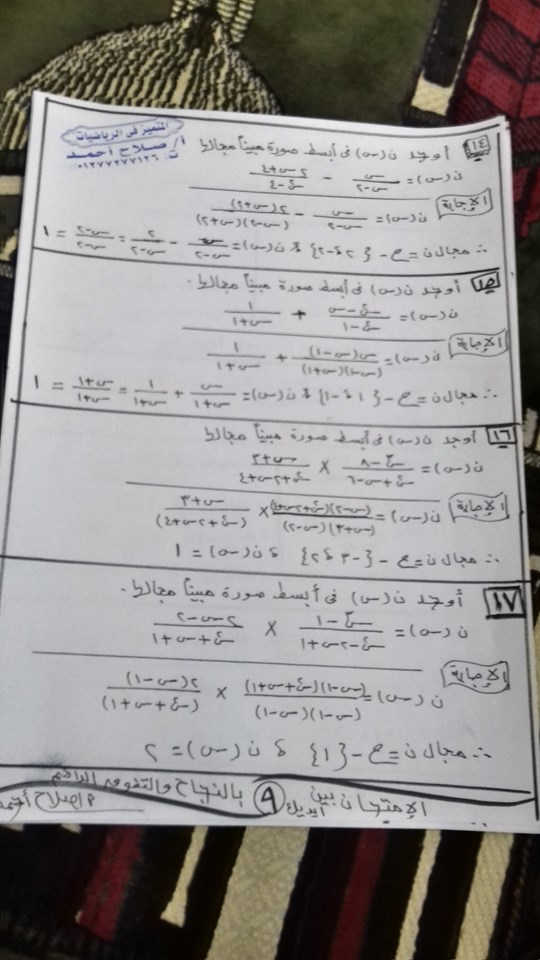 المتميز فى الرياضيات
أ/ صلاح أحمد
ت: ٠١٢٧٧٢٧٧١٢٦
١٤ أوجد ن(س) فى أبسط صورة مبيناً مجالها
ن(س) = س/(س-٢) - (٢س+٤)/(س²-٤)
الإجابة
ن(س) = س/(س-٢) - ٢(س+٢)/((س-٢)(س+٢))
∴ مجال ن = ح - {٢، -٢} ، ن(س) = س/(س-٢) - ٢/(س-٢) = (س-٢)/(س-٢) = ١
١٥ أوجد ن(س) فى أبسط صورة مبيناً مجالها.
ن(س) = (س²-س)/(س²-١) + ١/(س+١)
الإجابة
ن(س) = س(س-١)/((س-١)(س+١)) + ١/(س+١)
∴ مجال ن = ح - {١، -١} ، ن(س) = س/(س+١) + ١/(س+١) = (س+١)/(س+١) = ١
١٦ أوجد ن(س) فى أبسط صورة مبيناً مجالها
ن(س) = (س³-٨)/(س²+س-٦) × (س+٣)/(س²+٢س+٤)
الإجابة
ن(س) = (س-٢)(س²+٢س+٤)/((س+٣)(س-٢)) × (س+٣)/(س²+٢س+٤)
∴ مجال ن = ح - {-٣، ٢} ، ن(س) = ١
١٧ أوجد ن(س) فى أبسط صورة مبيناً مجالها.
ن(س) = (س³-١)/(س²-٢س+١) × (٢س-٢)/(س²+س+١)
الإجابة
ن(س) = (س-١)(س²+س+١)/((س-١)(س-١)) × ٢(س-١)/(س²+س+١)
∴ مجال ن = ح - {١} ، ن(س) = ٢
الإمتحان بين إيديك ٩ بالنجاح والتفوق الدائم
أ/صلاح أحمد